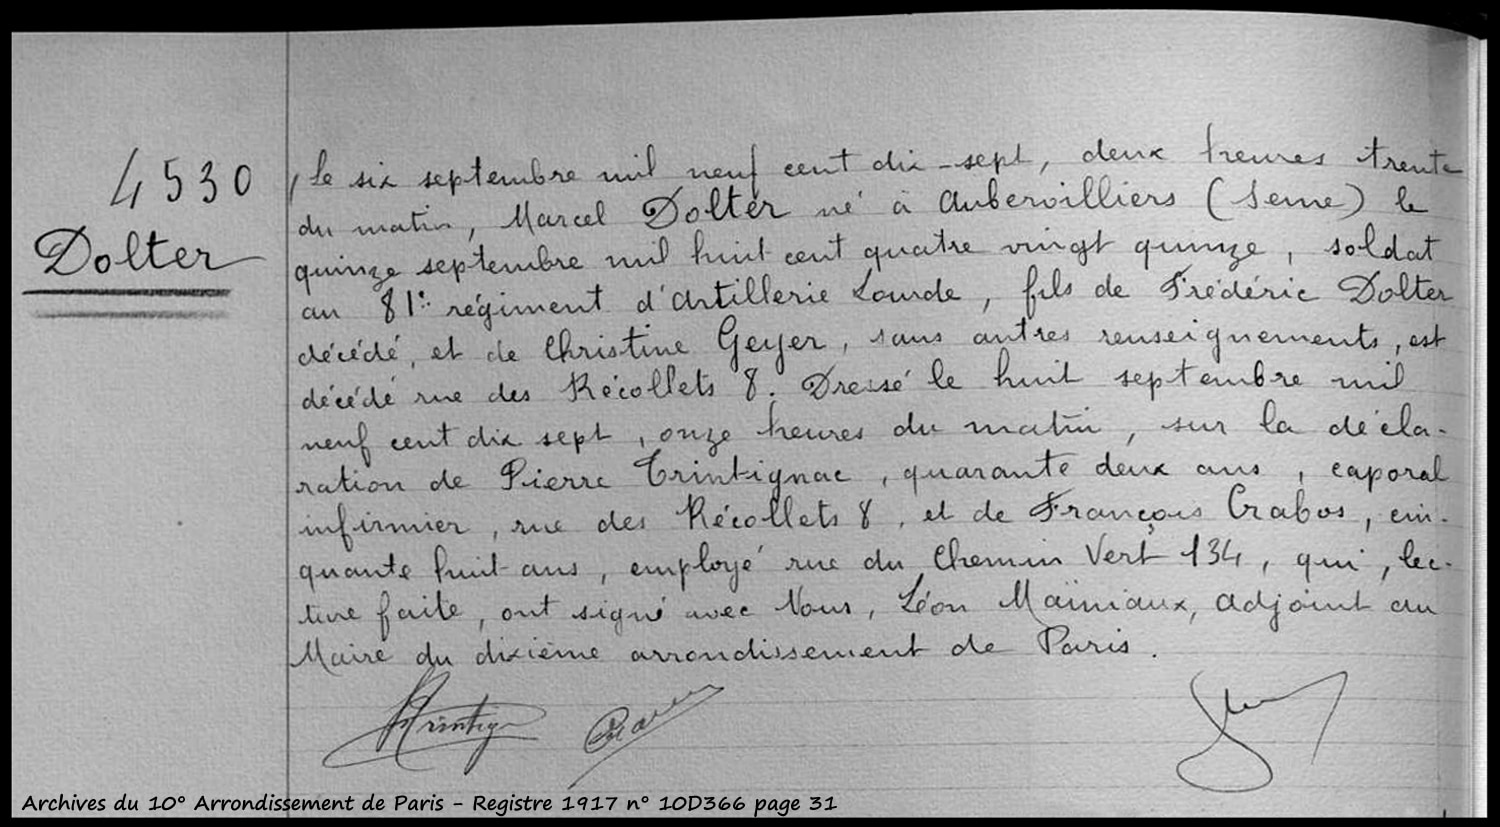 4530
Dolter
, Le six septembre mil neuf cent dix-sept, deux heures trente
du matin, Marcel Dolter né à Aubervilliers (Seine) le
quinze septembre mil huit cent quatre vingt quinze, soldat
au 81e régiment d'Artillerie Lourde, fils de Frédéric Dolter
décédé, et de Christine Geyer, sans autres renseignements, est
décédé rue des Récollets 8. Dressé le huit septembre mil
neuf cent dix sept, onze heures du matin, sur la décla-
ration de Pierre Trintignac, quarante deux ans, caporal
infirmier, rue des Récollets 8, et de François Crabos, cin-
quante huit ans, employé rue du Chemin Vert 134, qui, lec-
ture faite, ont signé avec Nous, Léon Mainiaux, adjoint au
Maire du dixième arrondissement de Paris.
Archives du 10° Arrondissement de Paris - Registre 1917 n° 10D366 page 31